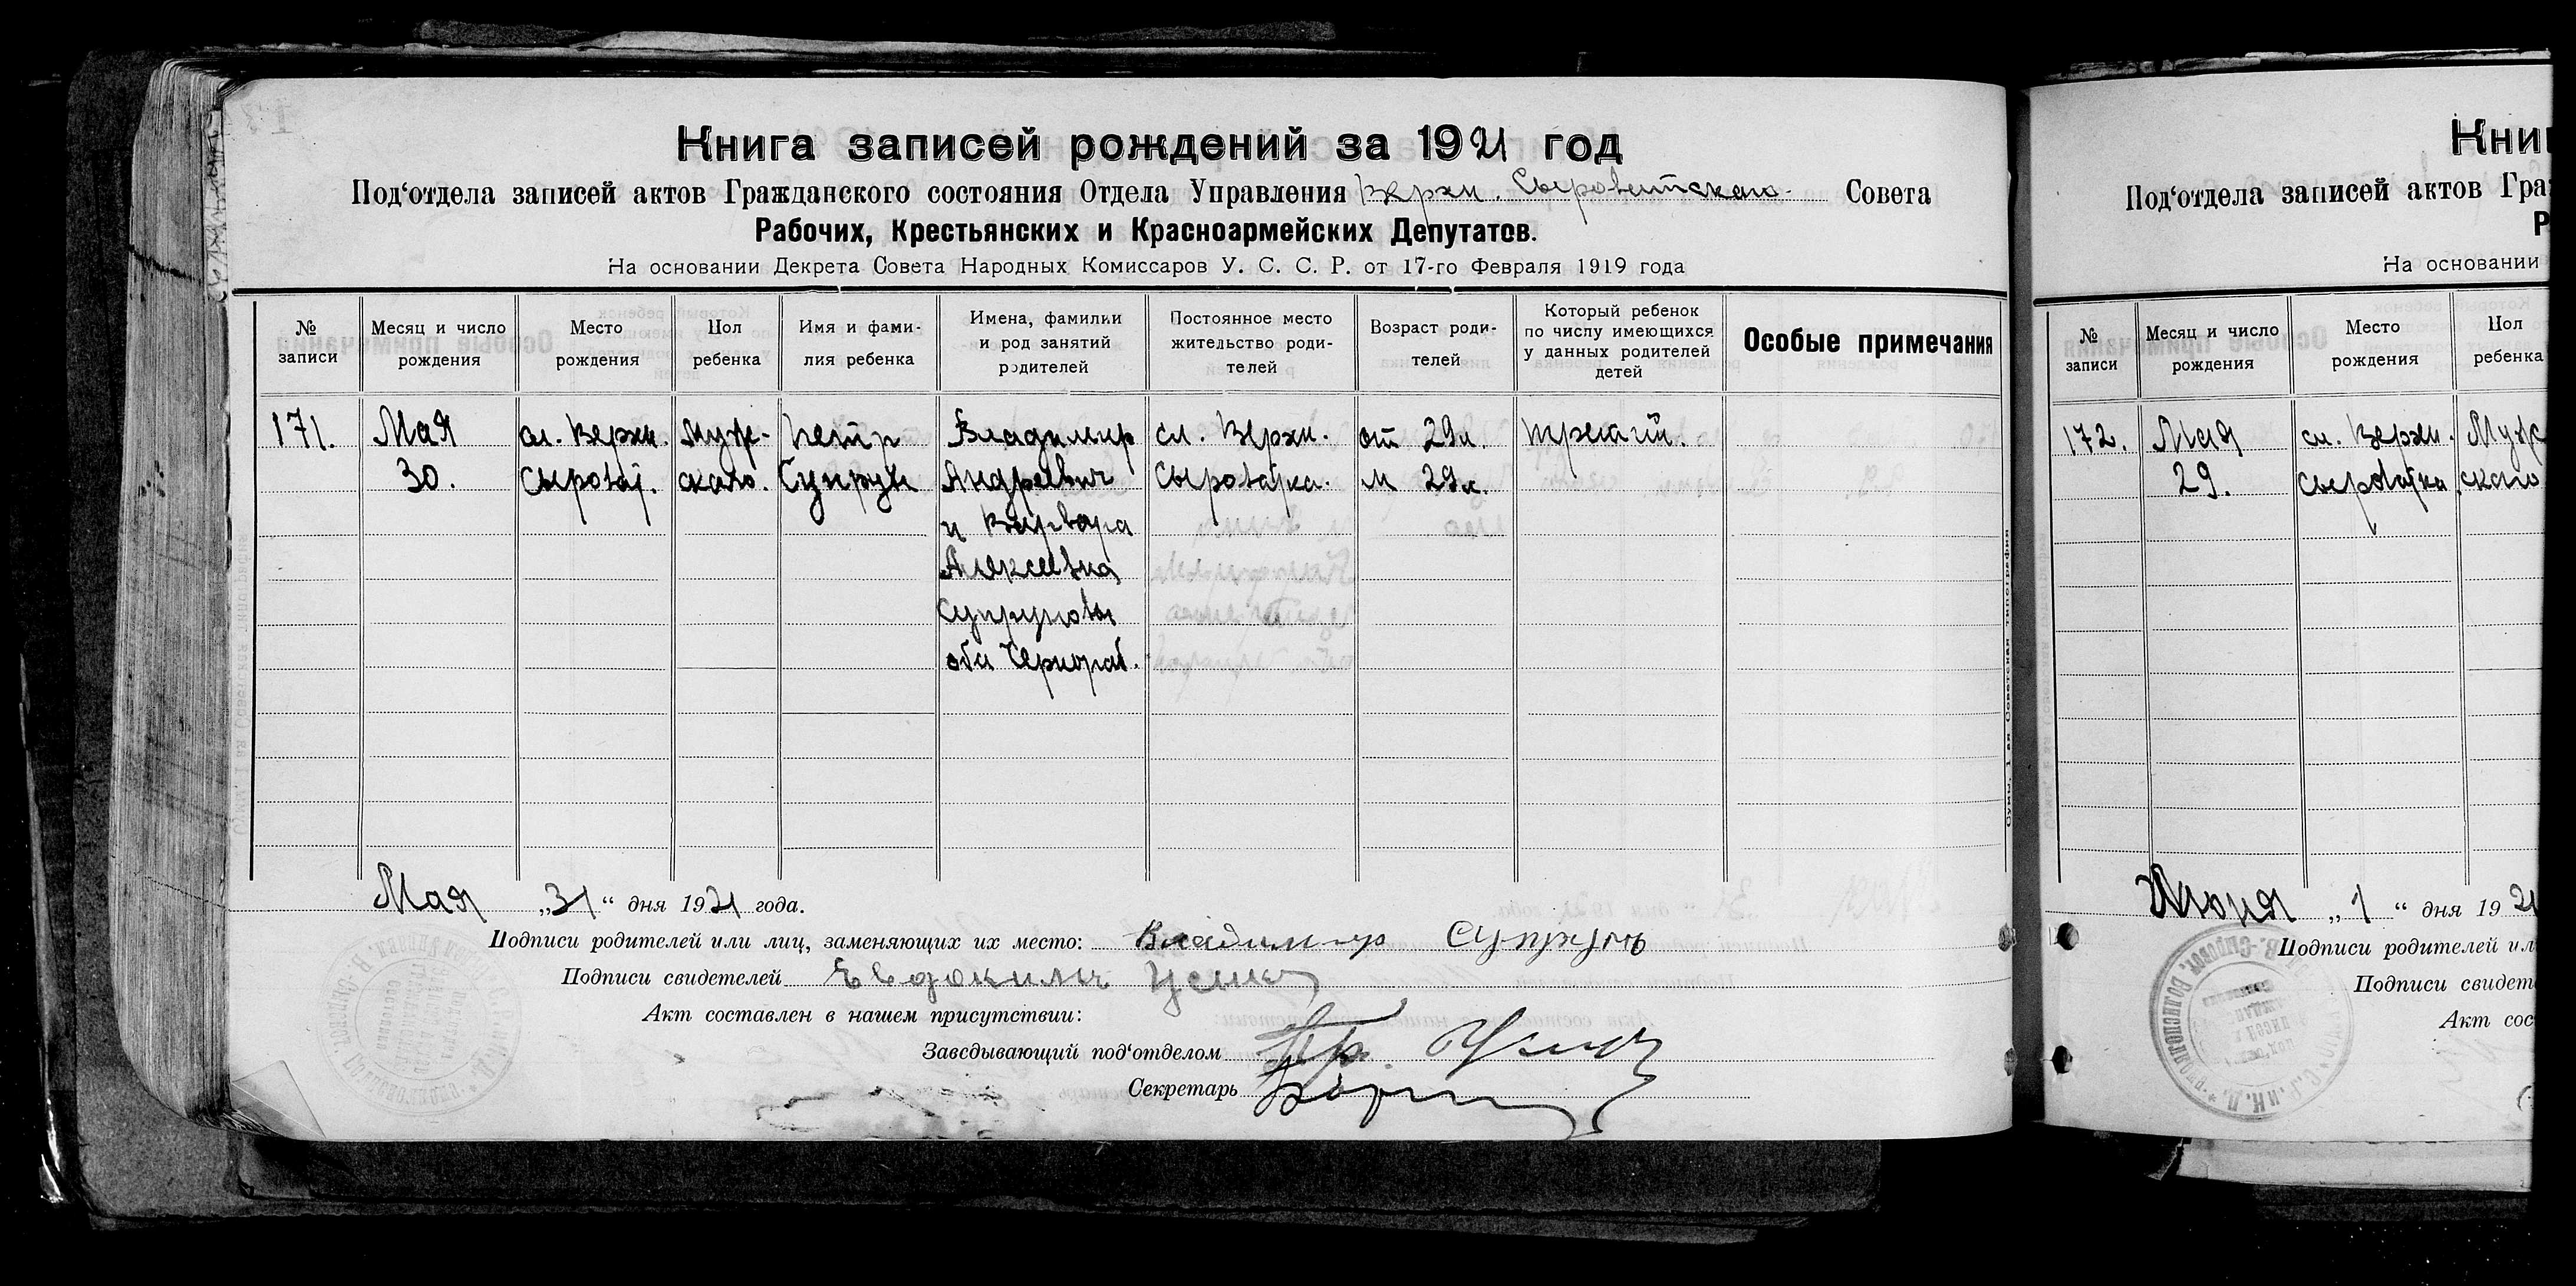 Книга записей рождений за 1921 год
Под‘отдела записей актов Гражданского состояния Отдела Управления Верхн. Сыроватского Совета
Рабочих, Крестьянских и Красноармейских Депутатов.
На основании Декрета Совета Народных Комиссаров У. С. С. Р. от 17-го Февраля 1919 года
№ записи
Месяц и число рождения
Место рождения
Пол ребенка
Имя и фами-
лия ребенка
Имена, фамилии
и род занятий
родителей
Постоянное место
жительство роди-
телей
Возраст роди-
телей
Который ребенок
по числу имеющихся
у данных родителей
детей
Особые примечания
171.
Мая
30.
сл. Верхн.
Сыроват.
Муж-
ского.
Петр
Супрун
Владимир
Андреевич
и Варвара
Алексеевна
Супруновы
оба Чернораб.
сл. Верхн.
Сыроватка.
от 29 л.
м 29 л.
третий.
Мая „31“ дня 1921 года.
Подписи родителей или лиц, заменяющих их место: Владимир Супрунъ
Подписи свидетелей Евдокимъ
Акт составлен в нашем присутствии:
Заведывающий под‘отделом
Секретарь
Сумы, 1-ая Советская типография
Кни
Под‘отдела записей актов Гра
Р
На основании
№
записи
Месяц и число
рождения
Место
рождения
Пол
ребенка
172.
Мая
29.
сл. Верхн.
Сыроватка.
Муж
ского
Июня „1“ дня 1921
Подписи родителей ил
Подписи свидет
Акт сос